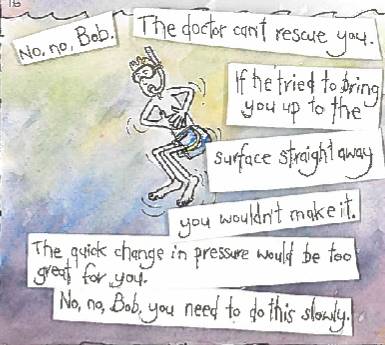 16
No, no, Bob.
The doctor can't rescue you.
If he tried to bring
you up to the
surface straight away
you wouldn't make it.
The quick change in pressure would be too
great for you.
No, no, Bob, you need to do this slowly.